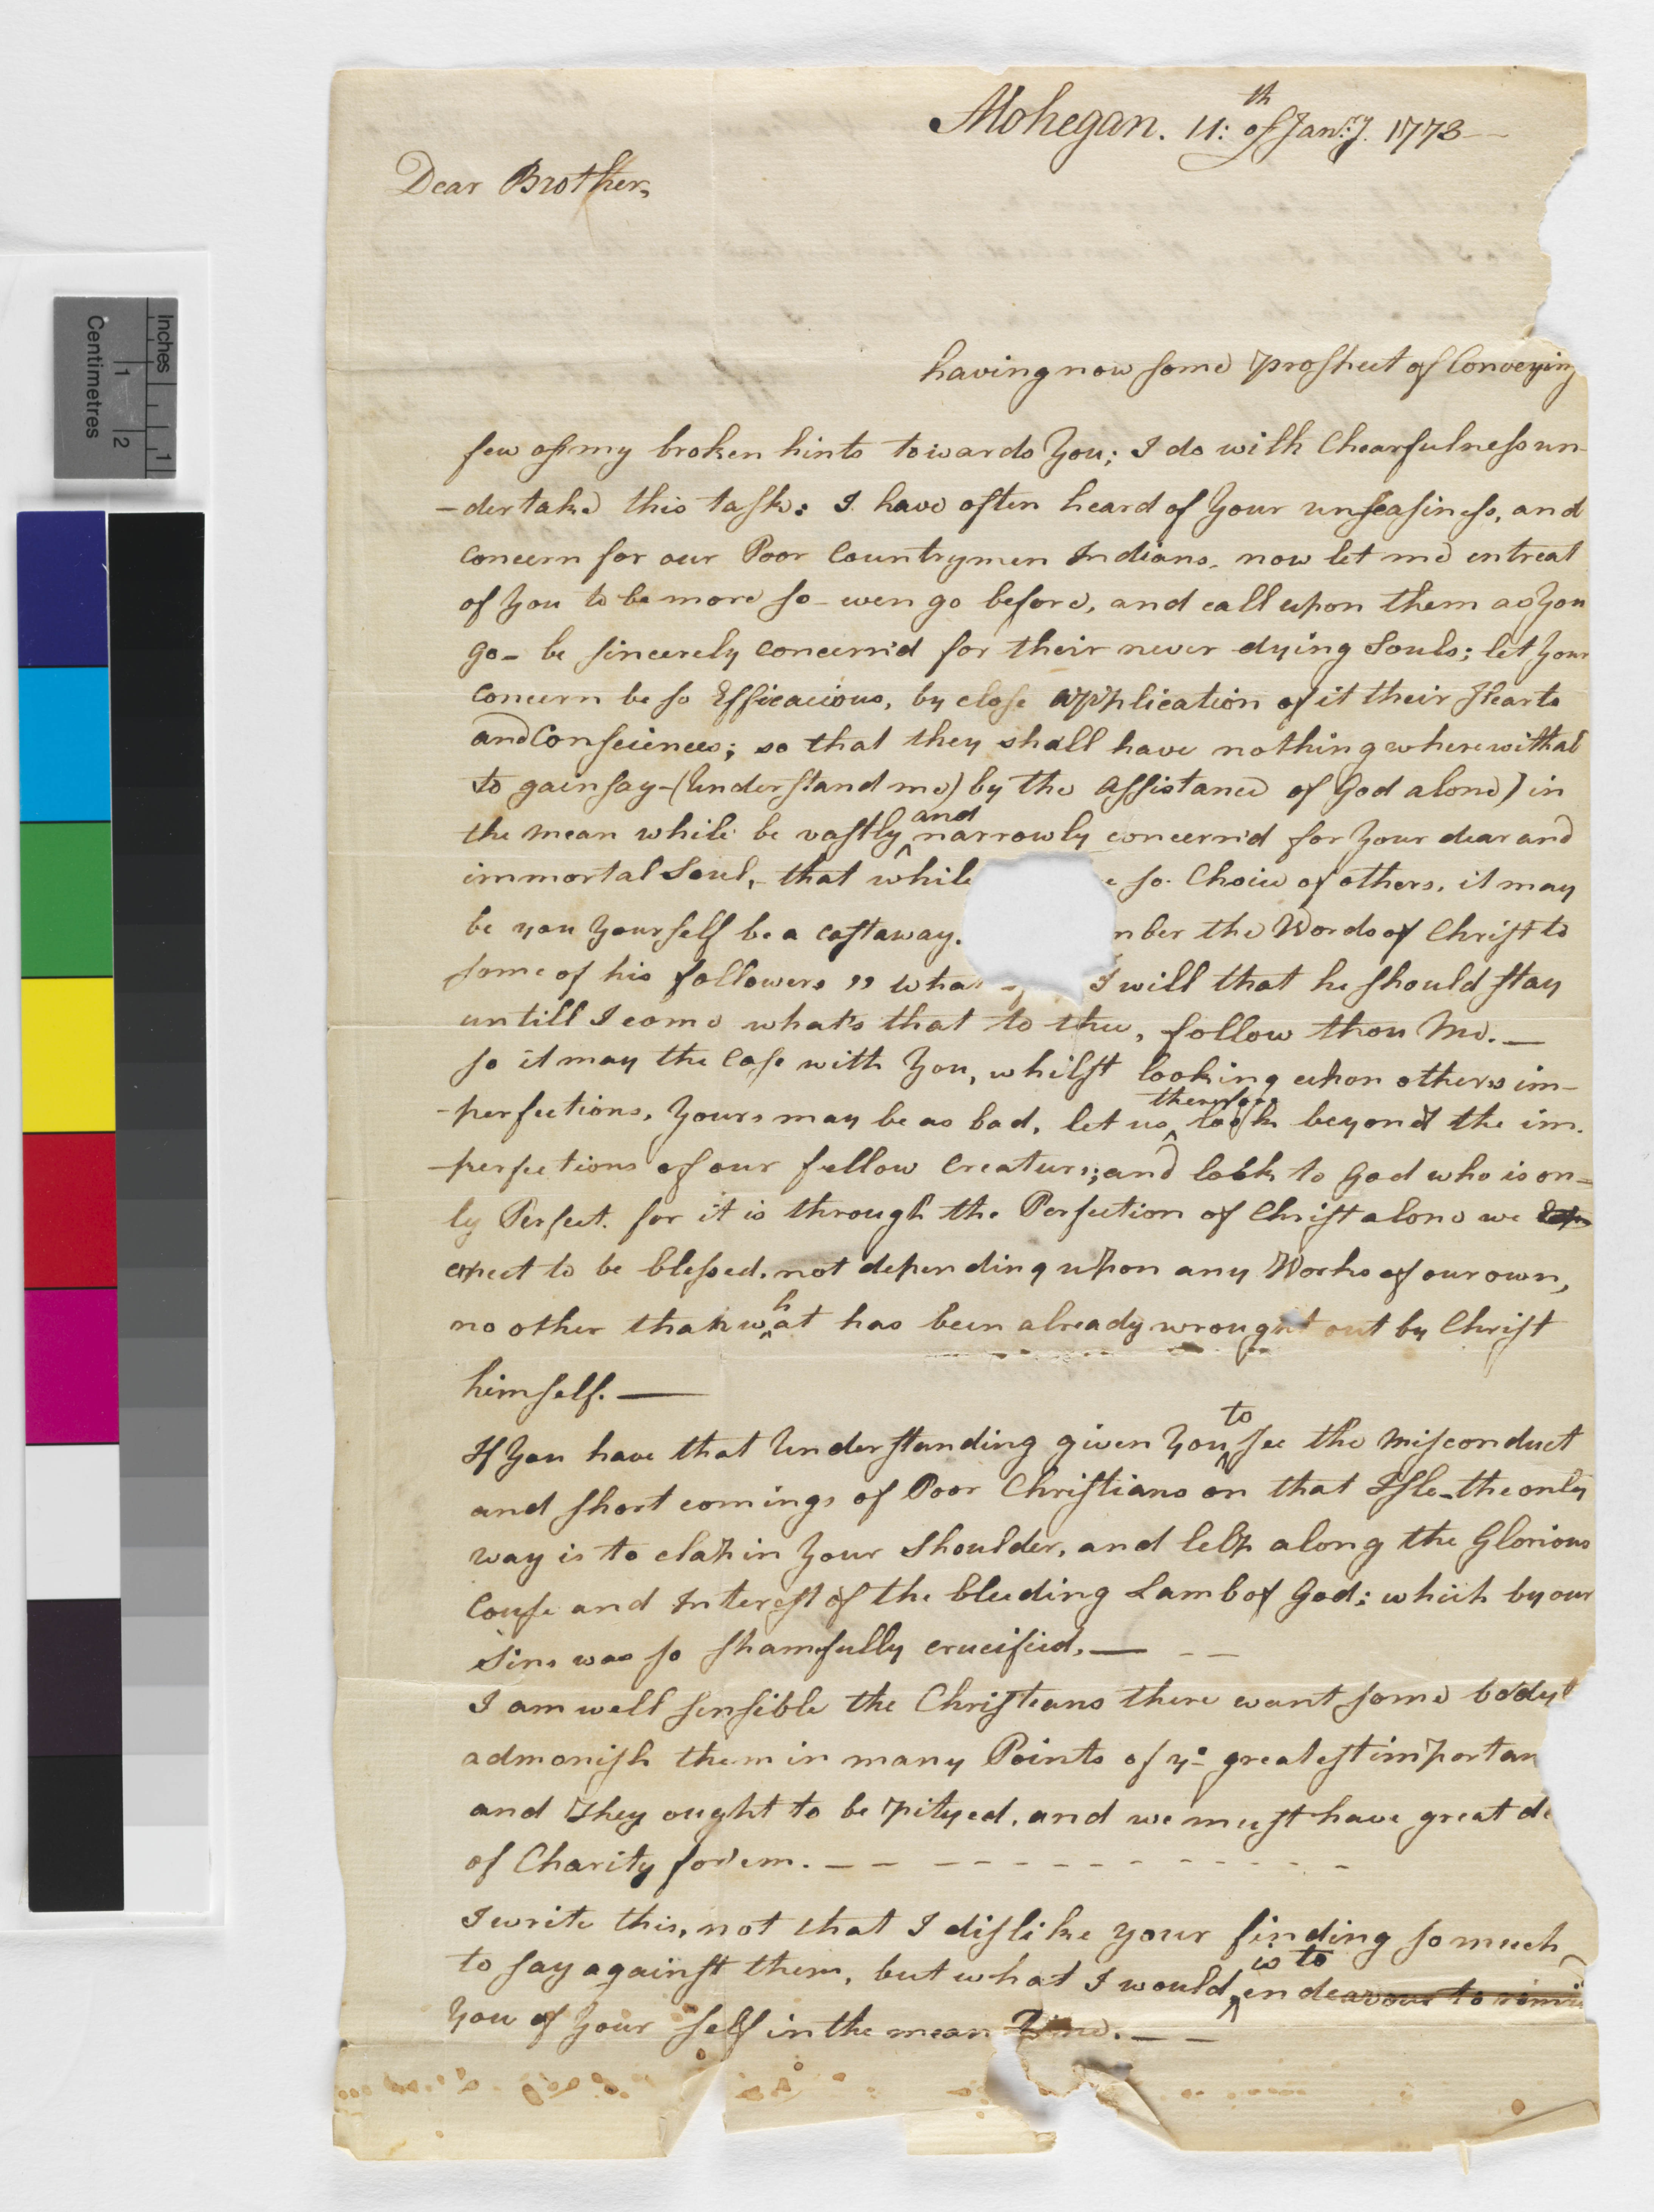 Mohegan. 11:th of Jany. 1778
Dear Brother,
having now some prospect of Conveying
few of my broken hints towards You; I do with Chearfulness un-
-dertake this task: I have often heard of Your uneasiness, and
concern for our Poor Countrymen Indians, now let me entreat
of You to be more so - even go before, and call upon them as You
go - be sincerely concern'd for their never dying Souls; let Your
concern be so Efficacious, by close application of it their Hearts
and Consciences; so that they shall have nothing wherewithal
to gainsay - (Understand me) by the assistance of God alone) in
the mean while be vastly and narrowly concern'd for Your dear and
immortal Soul, - that while so Choice of others, it may
be you Yourself be a castaway. mber the Words of Christ to
some of his followers " what I will that he should stay
untill I come what's that to thee, follow thou Me. —
so it may the Case with You, whilst looking upon others im-
-perfections, Yours may be as bad, let us therefore look beyond the im-
-perfections of our fellow Creaturs; and look to God who is on=
ly Perfect. for it is through the Perfection of Christ alone we
expect to be blessed, not depending upon any Works of our own,
no other than what has been already wrought out by Christ
himself. —
If You have that Understanding given You to see the Misconduct
and short comings of Poor Christians on that Isle - the only
way is to clap in Your Shoulder, and help along the Glorious
Couse and Interest of the bleeding Lamb of God; which by our
Sins was so shamfully crucified, — - -
I am well sensible the Christians there want some body
admonish them in many Points of ye greatest importan
and They ought to be pityed, and we must have great de
of Charity for'em. - - - - - - - - - - - - -
I write this, not that I dislike your finding so much
to say against them, but what I would is to endeavour to remi
You of Your self in the mean Time. — - -
Inches
1
Centimetres
1 2